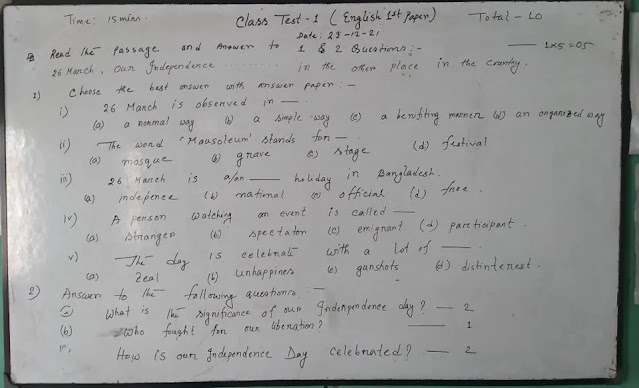 Time: 15 min. Class Test-1 ( English 1st Paper) Total - 10
Date: 23-12-21
Read the passage and Answer to 1 & 2 Questions:- — 1x5=05
26 March, our Independence .......... in the other place in the country.
1) Choose the best answer with answer paper:-
i) 26 March is observed in —.
(a) a normal way (b) a simple way (c) a benifiting manner (d) an organized way
ii) The word 'Mausoleum' stands for —
(a) mosque (b) grave (c) stage (d) festival
iii) 26 March is a/an — holiday in Bangladesh.
(a) indepence (b) national (c) official (d) free.
iv) A person watching an event is called —
(a) stranger (b) spectator (c) emigrant (d) participant.
v) The day is celebrate with a lot of —.
(a) Zeal (b) unhappines (c) gunshots (d) distinterest.
2) Answer to the following questions:-
(a) What is the significance of our Independence day? — 2
(b) Who fought for our liberation? — 1
How is our Independence Day celebrated? — 2